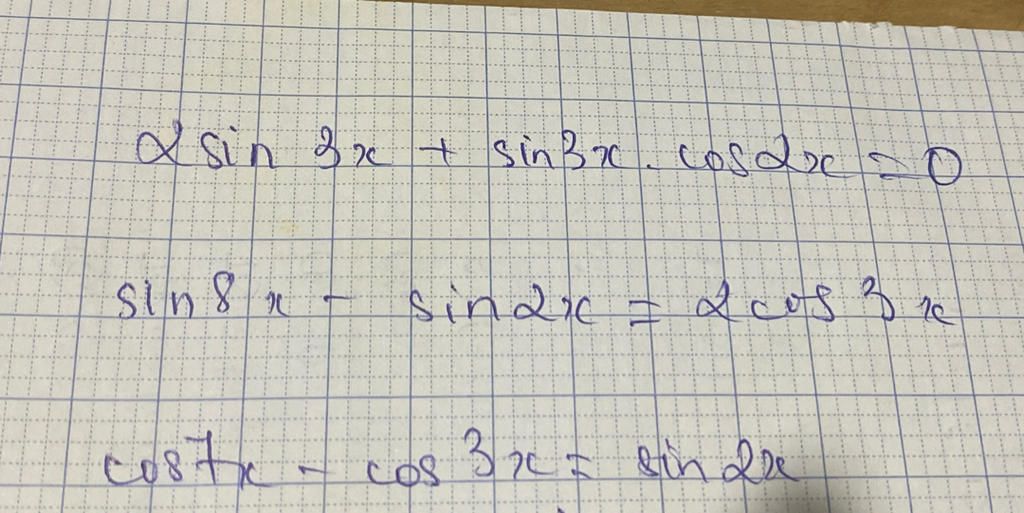 2 sin 3x + sin 3x . cos 2x = 0
sin 8x - sin 2x = 2 cos 3x
cos 7x - cos 3x = sin 2x